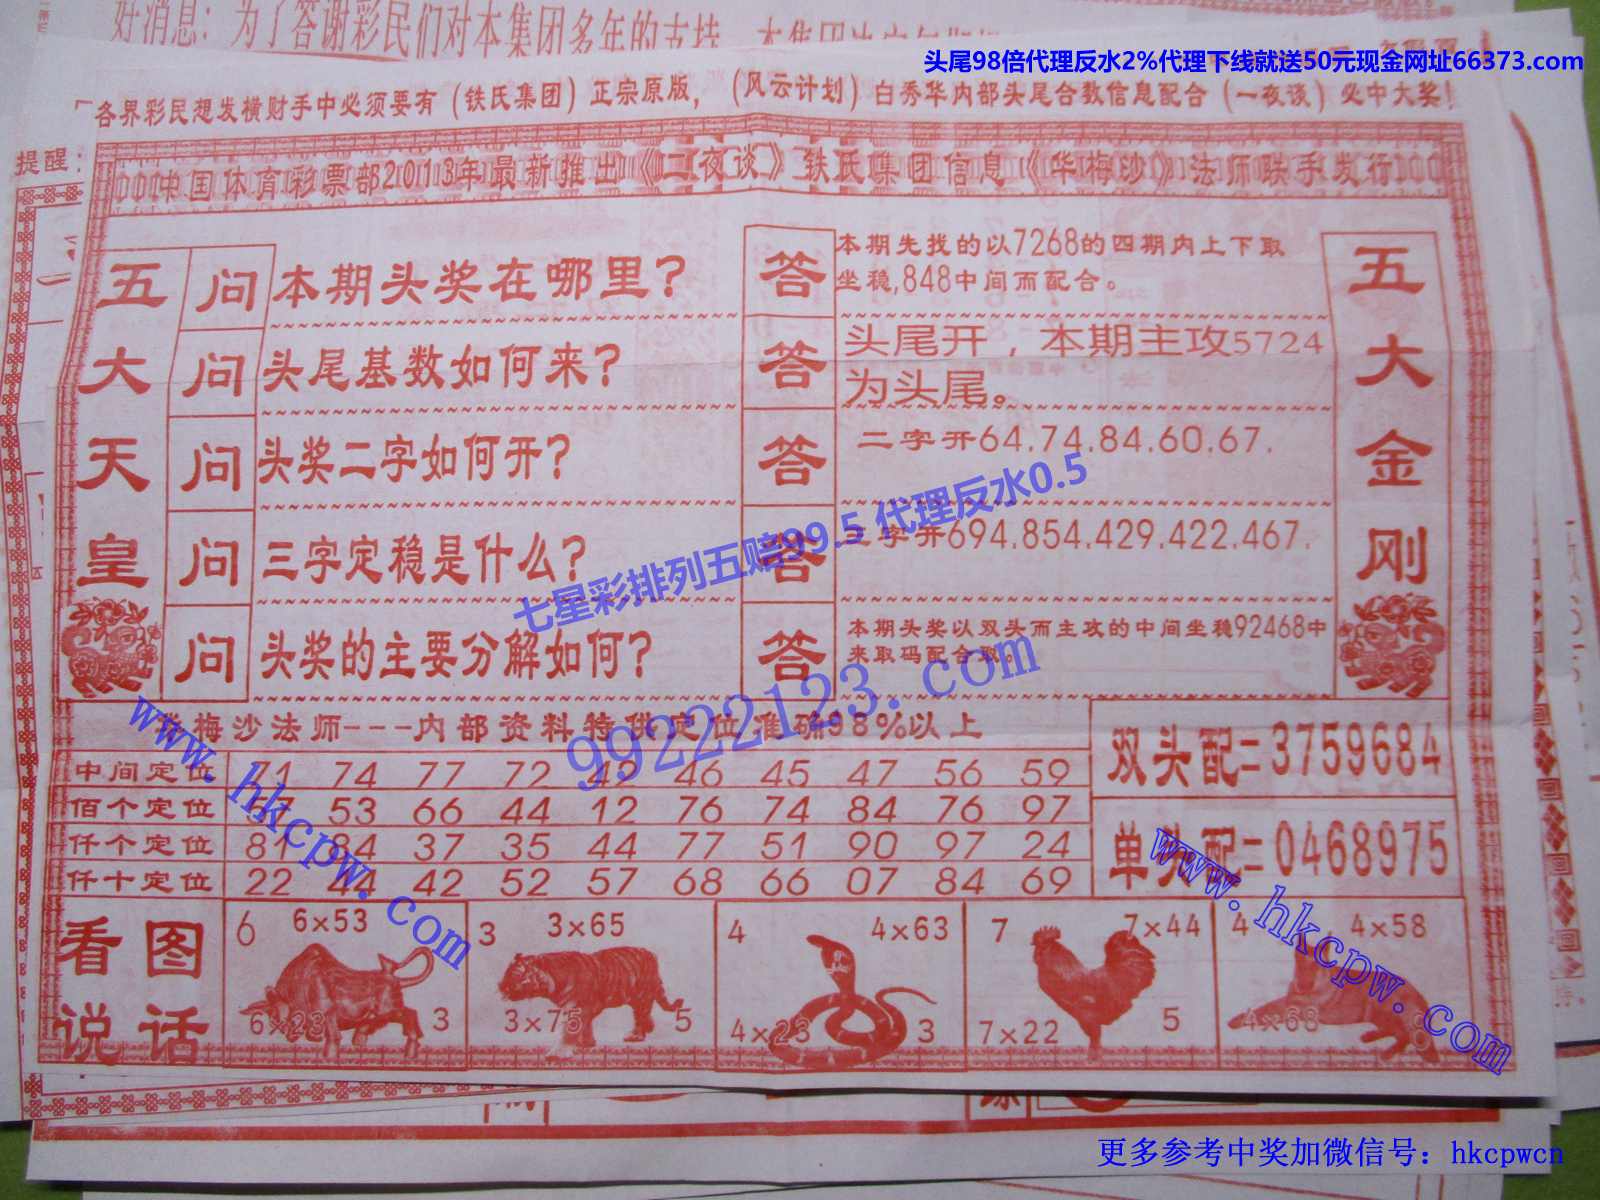 好消息：为了答谢彩民们对本集团多年的支持
头尾98倍代理反水2%代理下线就送50元现金网址66373.com
各界彩民想发横财手中必须要有（铁氏集团）正宗原版，（风云计划）白秀华内部头尾合数信息配合（一夜谈）必中大奖！
提醒：
中国体育彩票部2013年最新推出《二夜谈》铁氏集团信息《华梅沙》法师联手发行
五大天皇
问 本期头奖在哪里？
答 本期先找的以7268的四期内上下取
坐稳,848中间而配合。
问 头尾基数如何来？
答 头尾开，本期主攻5724
为头尾。
问 头奖二字如何开？
答 二字开64.74.84.60.67.
问 三字定稳是什么？
答 三字开694.854.429.422.467.
问 头奖的主要分解如何？
答 本期头奖以双头而主攻的中间坐稳92468中
来取码配合取。
五大金刚
七星彩排列五赔99.5 代理反水0.5
99222123.com
www.hkcpw.com
梅沙法师---内部资料特供定位准确98%以上
中间定位 71 74 77 72 42 46 45 47 56 59
佰个定位 53 66 44 12 76 74 84 76 97
仟个定位 81 84 37 35 44 77 51 90 97 24
仟十定位 22 44 42 52 57 68 66 07 84 69
双头配=3759684
单头配=0468975
www.hkcpw.com
看图
说话
6 6×53
6×23 3
3 3×65
3×75 5
4 4×63
4×23 3
7 7×44
7×22 5
4 4×58
4×68
更多参考中奖加微信号：hkcpwcn